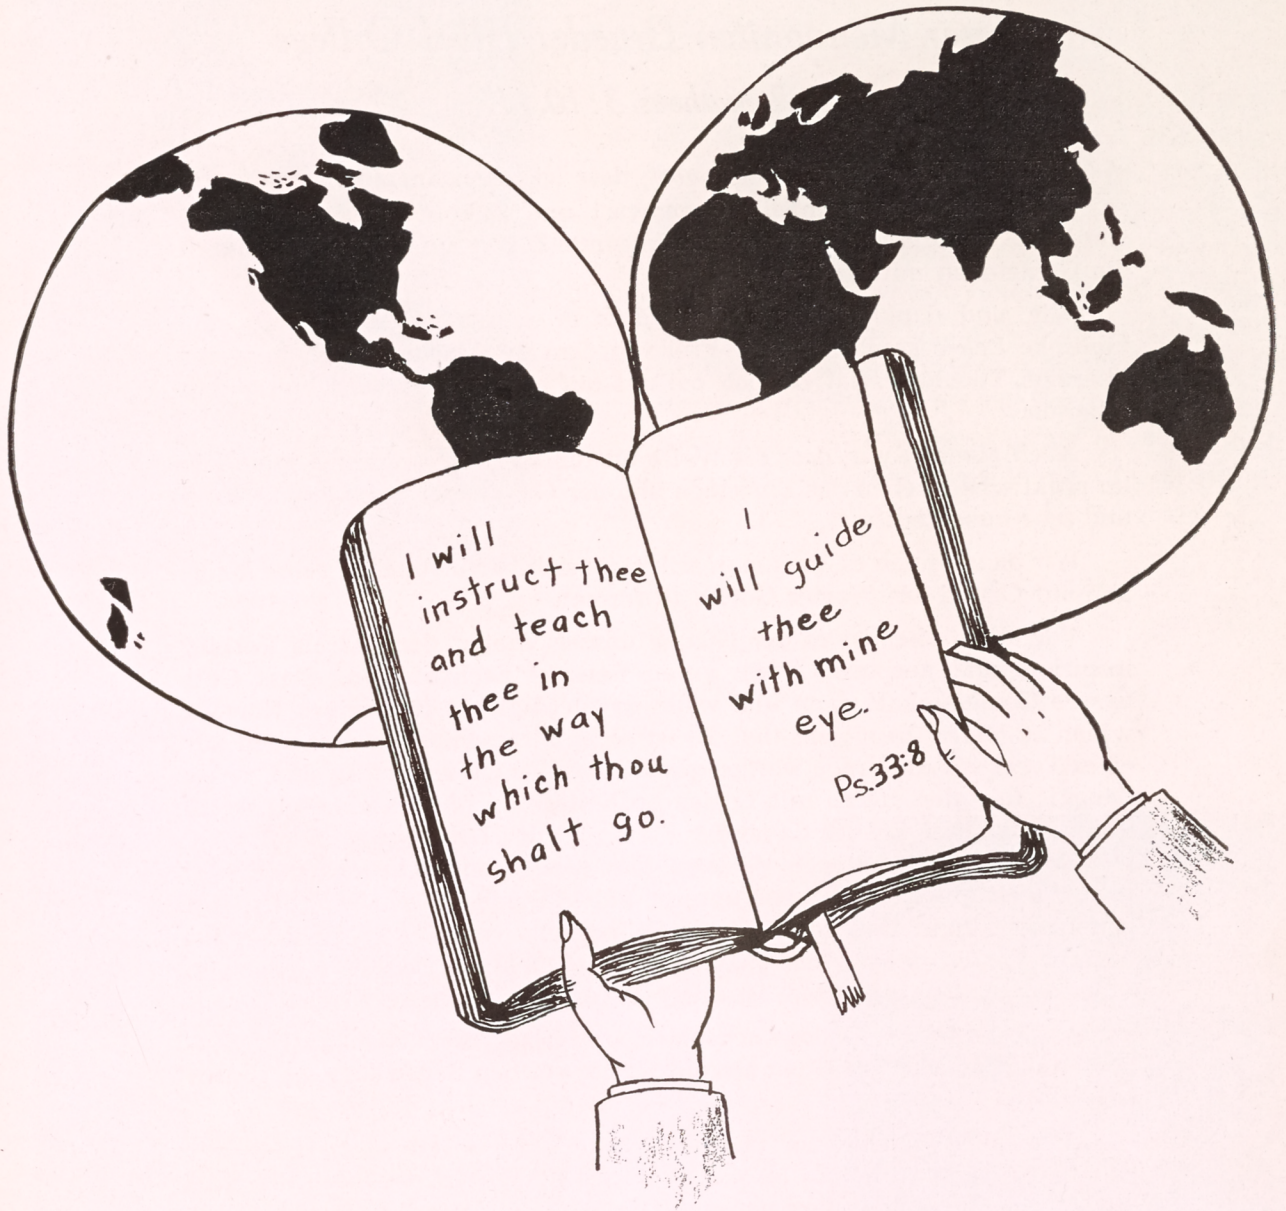 I will
instruct thee
and teach
thee in
the way
which thou
shalt go.
I
will guide
thee
with mine
eye.
Ps.33:8